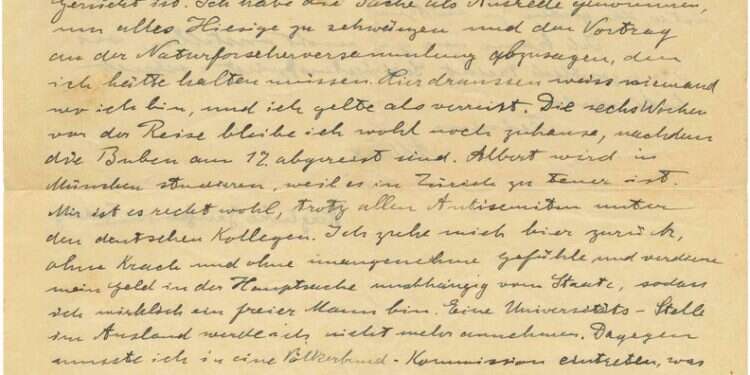 gerückt ist. Ich habe die Sache als Ausrede genommen,
um alles Hiesige zu schwänzen und den Vortrag
an der Naturforscherversammlung abzusagen, den
ich hätte halten müssen. Hier draussen weiss niemand
wo ich bin, und ich gelte als verreist. Die sechs Wochen
vor der Reise bleibe ich wohl noch zuhause, nachdem
die Buben am 12. abgereist sind. Albert wird in
München studieren, weil es in Zürich zu teuer ist.
Mir ist es recht wohl, trotz allen Antisemiten unter
den deutschen Kollegen. Ich ziehe mich hier zurück,
ohne Krach und ohne unangenehme Gefühle und verdiene
mein Geld in der Hauptsache unabhängig vom Staate, sodass
ich wirklich ein freier Mann bin. Eine Universitäts-Stelle
im Ausland werde ich nicht mehr annehmen. Dagegen
musste ich in eine Völkerbund-Kommission eintreten, was